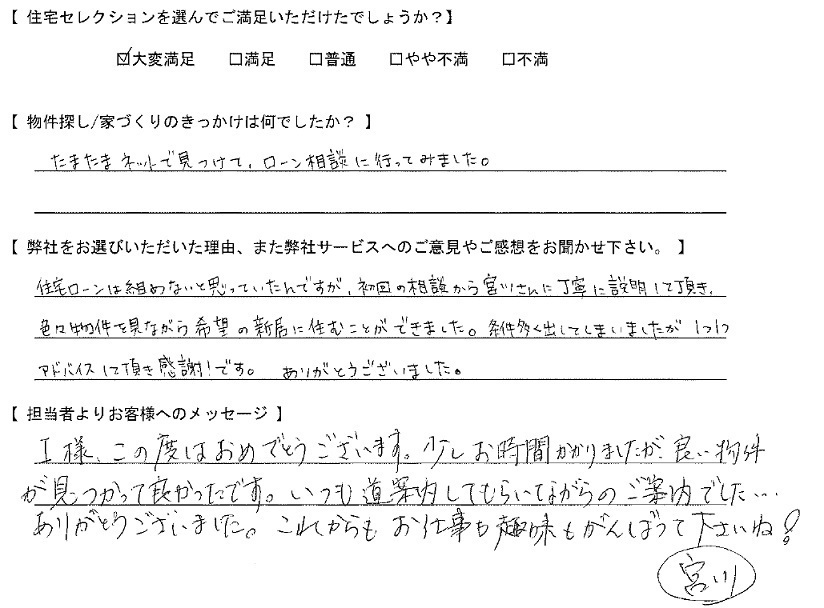 【 住宅セレクションを選んでご満足いただけたでしょうか？】
☑大変満足 □満足 □普通 □やや不満 □不満
【 物件探し/家づくりのきっかけは何でしたか？ 】
たまたまネットで見つけて、ローン相談に行ってみました。
【 弊社をお選びいただいた理由、また弊社サービスへのご意見やご感想をお聞かせ下さい。 】
住宅ローンは組めないと思っていたんですが、初回の相談から宮川さんに丁寧に説明して頂き、
色々物件を見ながら希望の新居に住むことができました。条件多く出してしまいましたが 1つ1つ
アドバイスして頂き感謝！です。 ありがとうございました。
【 担当者よりお客様へのメッセージ 】
I様、この度はおめでとうございます。少しお時間かかりましたが、良い物件
が見つかって良かったです。いつも道案内してもらいながらのご案内でした…
ありがとうございました。これからもお仕事も趣味もがんばって下さいね！
宮川